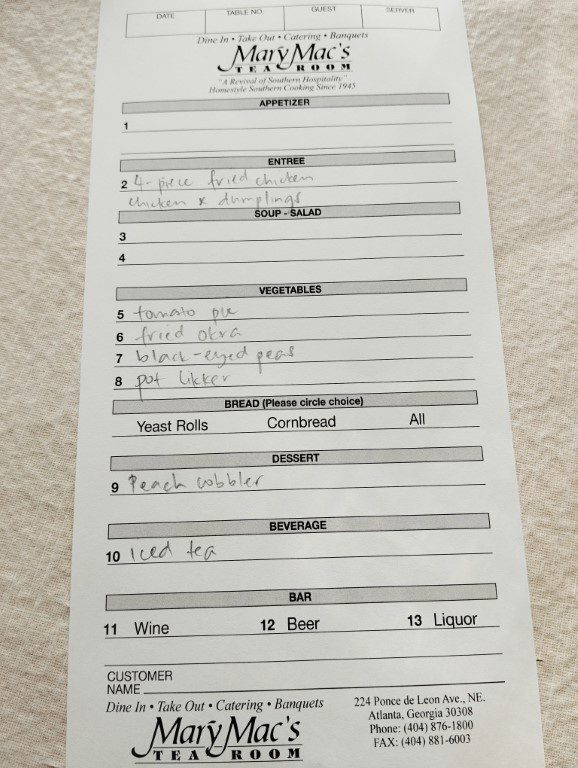 DATE TABLE NO. GUEST SERVER
Dine In • Take Out • Catering • Banquets
Mary Mac's
TEA ROOM
"A Revival of Southern Hospitality"
Homestyle Southern Cooking Since 1945
APPETIZER
1
ENTREE
2 4-piece fried chicken
chicken & dumplings
SOUP - SALAD
3
4
VEGETABLES
5 tomato pie
6 fried okra
7 black-eyed peas
8 pot likker
BREAD (Please circle choice)
Yeast Rolls Cornbread All
DESSERT
9 Peach cobbler
BEVERAGE
10 Iced tea
BAR
11 Wine 12 Beer 13 Liquor
CUSTOMER
NAME
Dine In • Take Out • Catering • Banquets
Mary Mac's
TEA ROOM
224 Ponce de Leon Ave., NE.
Atlanta, Georgia 30308
Phone: (404) 876-1800
FAX: (404) 881-6003